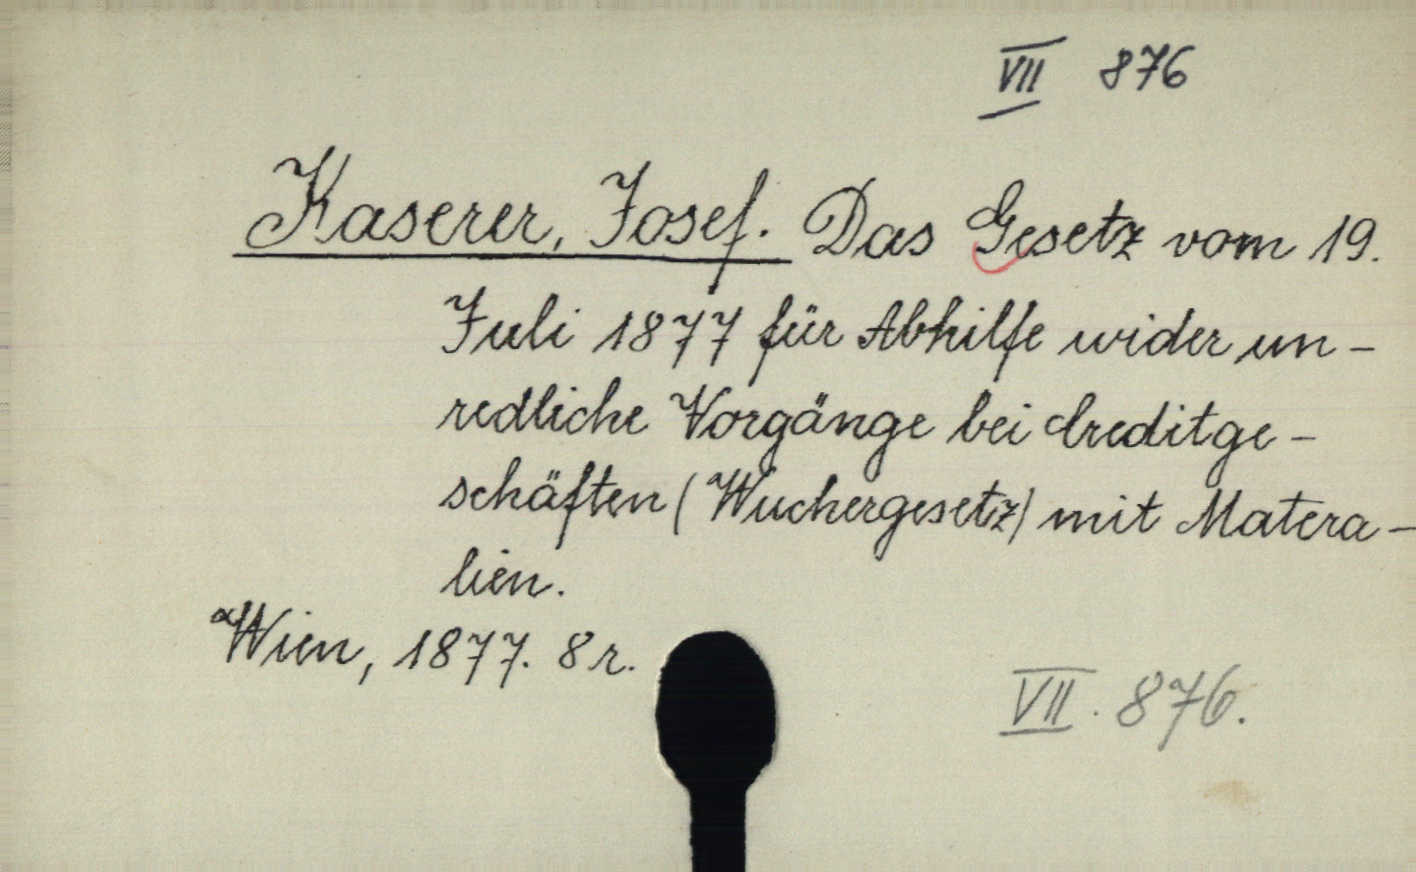 VII 876
Kaserer, Josef. Das Gesetz vom 19.
Juli 1877 für Abhilfe wider un-
redliche Vorgänge bei Creditge-
schäften (Wuchergesetz) mit Matera-
lien.
Wien, 1877. 8 r.
VII. 876.